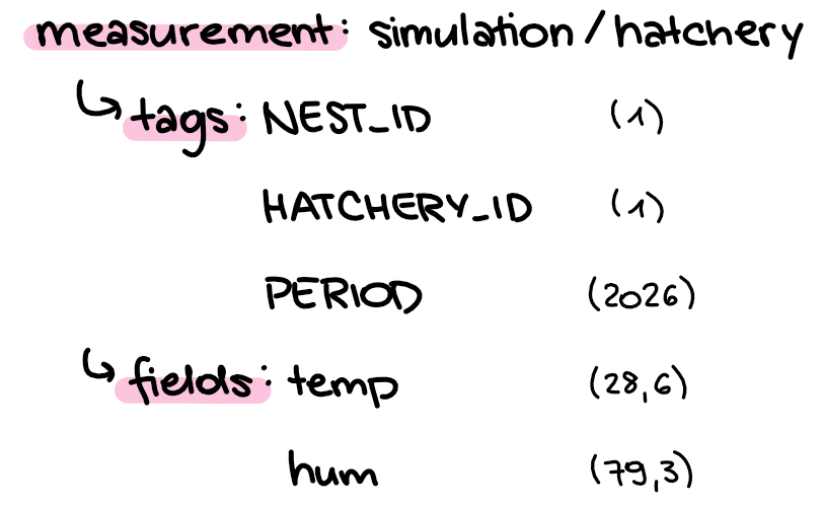 measurement: simulation/hatchery
↳ tags: NEST_ID (1)
HATCHERY_ID (1)
PERIOD (2026)
↳ fields: temp (28,6)
hum (79,3)